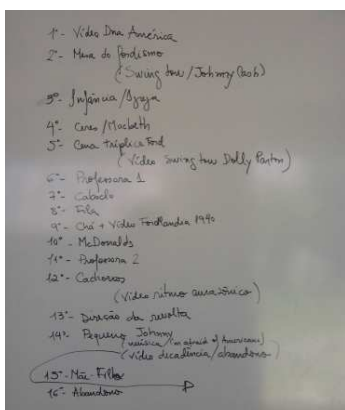 1º- Vídeo Dna América
2º- Mesa do fordismo
(Swing tow / Johnny Cash)
3º- Infância / Igreja
4º- Ceres / Macbeth
5º- Cena tríplice Ford
(Vídeo swing tow Dolly Parton)
6º- Professora 1
7º- Caboclo
8º- Fila
9º- Chá + Vídeo Fordlandia 1940
10º- McDonalds
11º- Professora 2
12º- Cachorros
(Vídeo ritmo amazônico)
13º- Direção da revolta
14º- Pequeno Johnny
(música / I'm afraid of Americans)
(vídeo decadência / abandono)
15º- Mãe-Filho
16º- Abandono